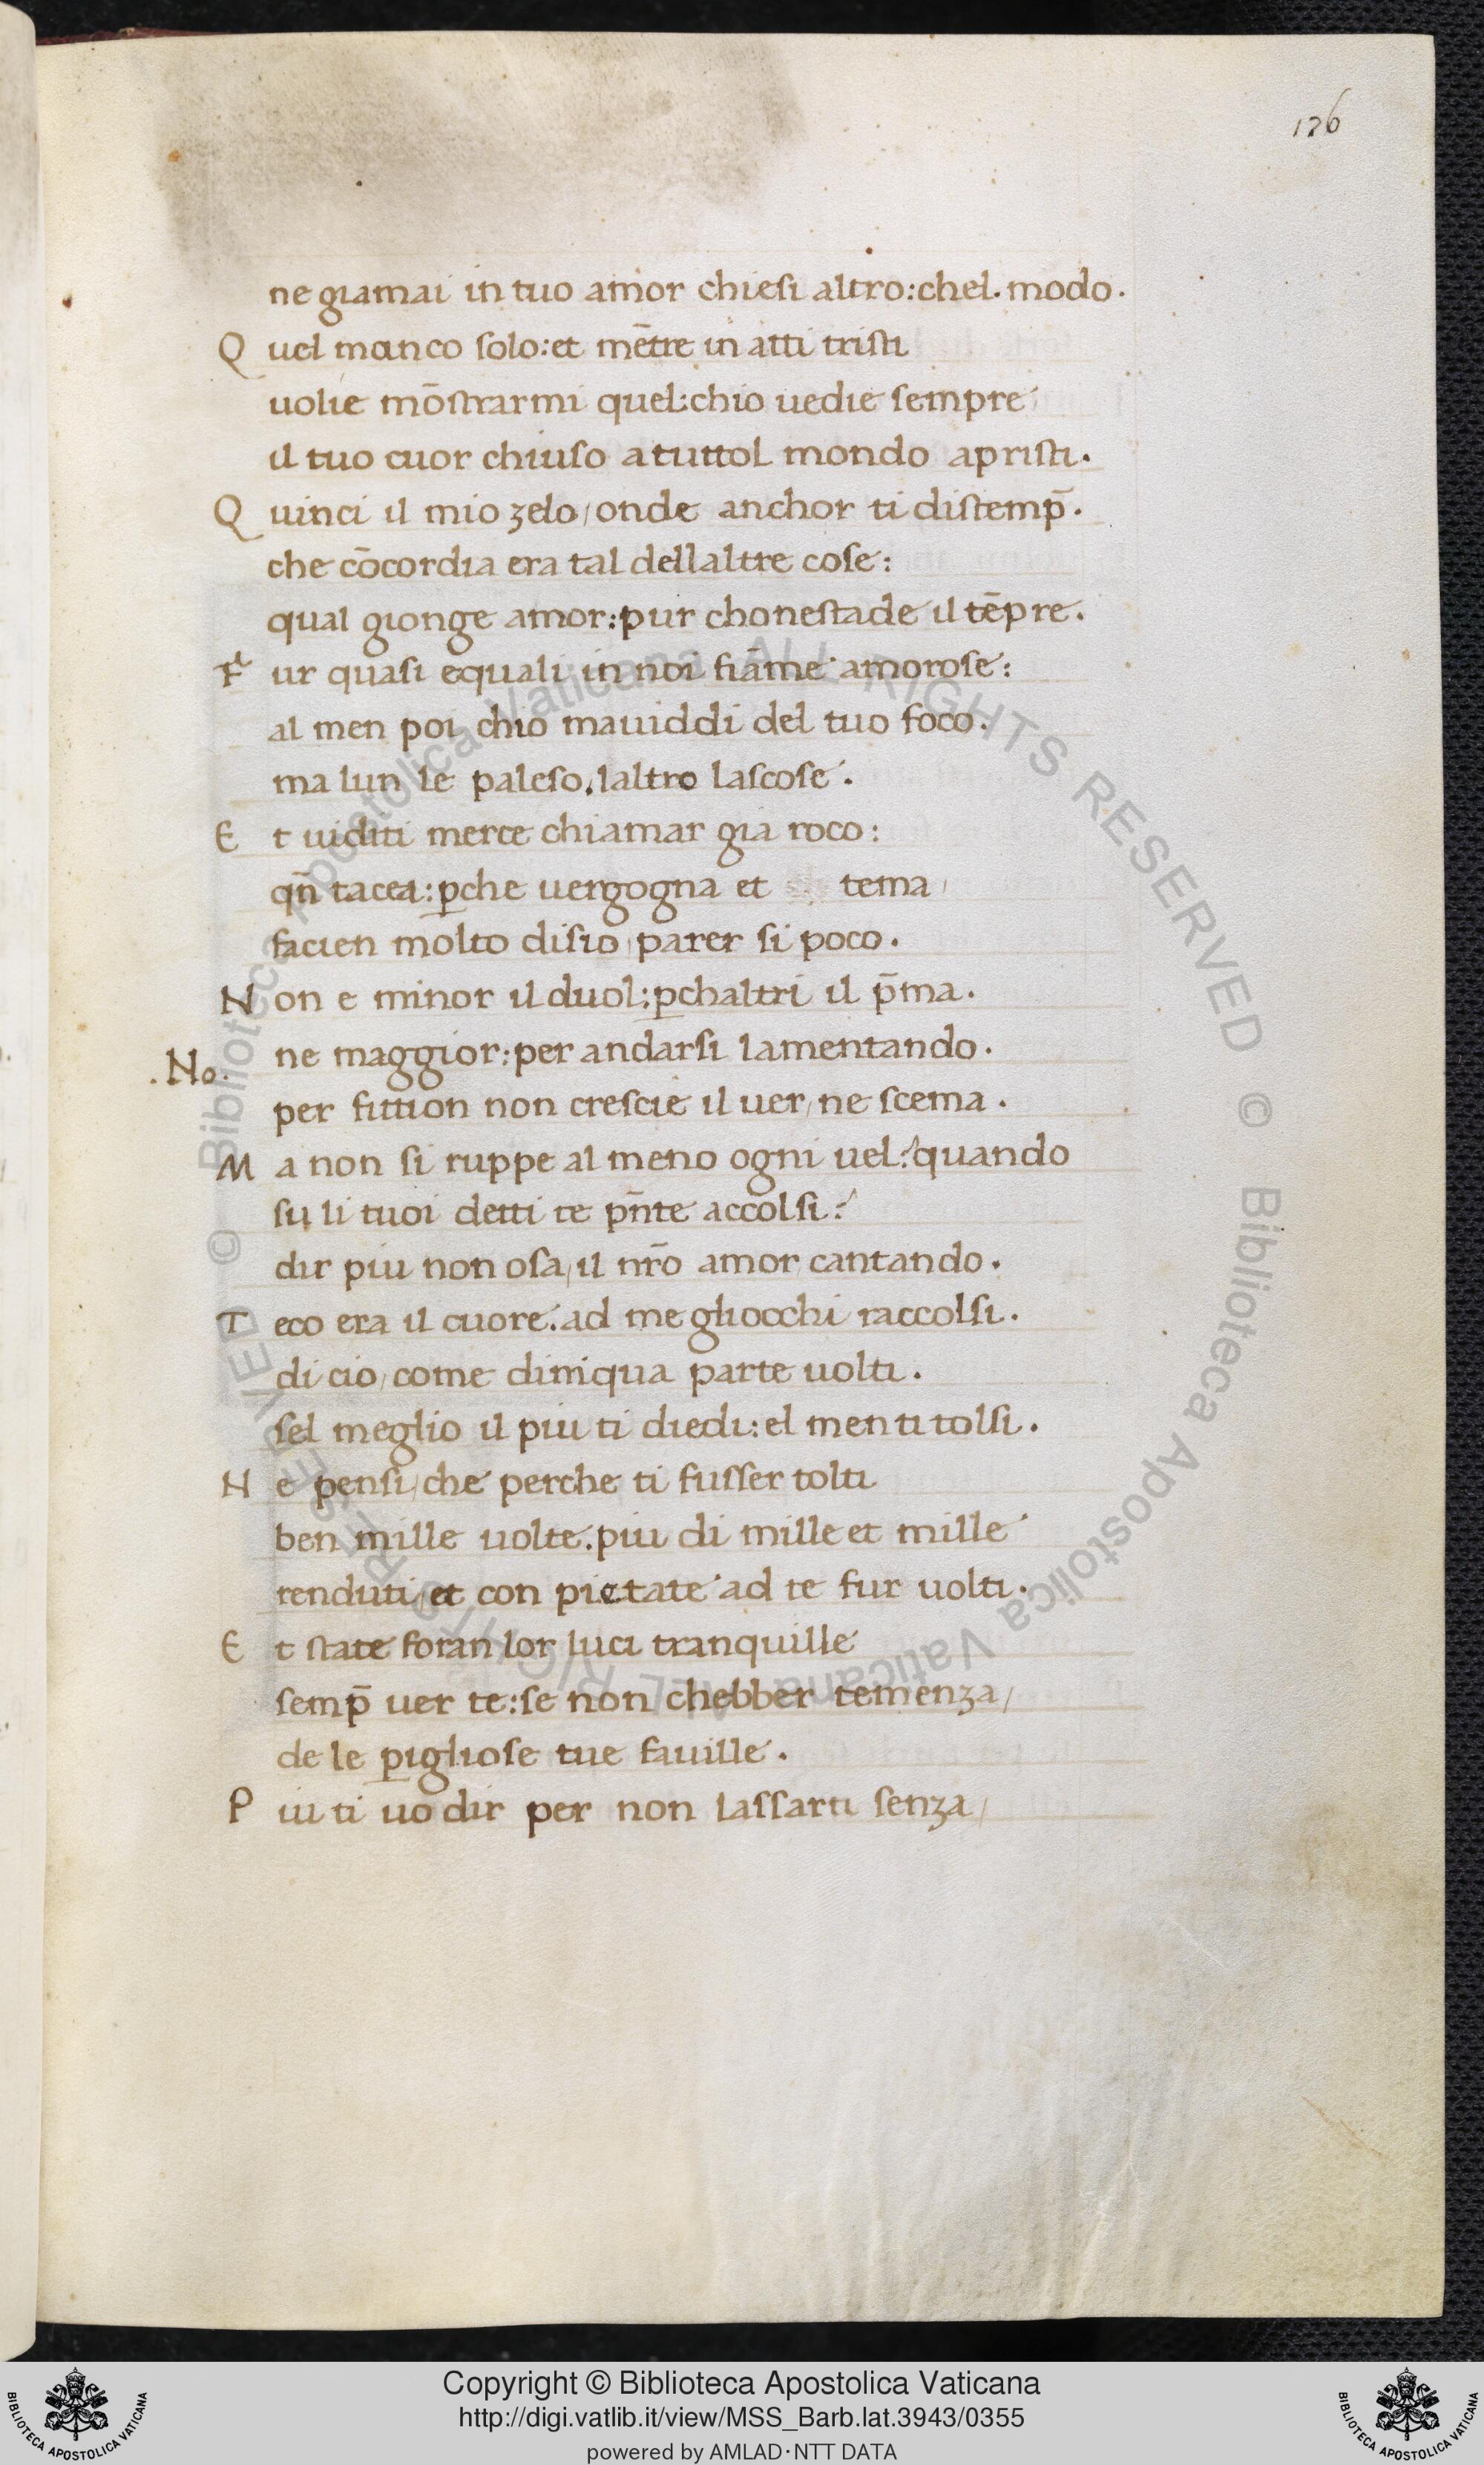 126
ne giamai in tuo amor chiesi altro: chel. modo.
Q uel manco solo: et mētre in atti tristi
uolie mōstrarmi quel: chio uedie sempre
il tuo cuor chiuso a tuttol mondo apristi.
Q uinci il mio zelo / onde anchor ti distemp̄.
che cōcordia era tal dellaltre cose:
qual gionge amor: pur chonestade il tēpre.
F ur quasi equali in noi fiāme amorose:
al men poi chio mauiddi del tuo foco.
ma lun le paleso. laltro lascose.
E t uiditi merce chiamar gia roco:
qn̄ tacea: ꝑche uergogna et tema /
facien molto disio / parer si poco.
N on e minor il duol: ꝑchaltri il p̄ma.
.No.
ne maggior: per andarsi lamentando.
per fittion non crescie il uer / ne scema.
M a non si ruppe al meno ogni uel? quando
su li tuoi detti te pn̄te accolsi?
dir piu non osa / il nr̄o amor cantando.
T eco era il cuore. ad me gliocchi raccolsi.
di cio / come diniqua parte uolti.
sel meglio il piu ti diedi: el men ti tolsi.
N e pensi / che perche ti fusser tolti
ben mille uolte. piu di mille et mille
renduti / et con pietate ad te fur uolti.
E t state foran lor luci tranquille
semp̄ uer te: se non chebber temenza /
de le ꝑigliose tue fauille.
P iu ti uo dir per non lassarti senza /
© Biblioteca Apostolica Vaticana ALL RIGHTS RESERVED © Biblioteca Apostolica Vaticana ALL RIGHTS RESERVED
BIBLIOTECA APOSTOLICA VATICANA
Copyright © Biblioteca Apostolica Vaticana
http://digi.vatlib.it/view/MSS_Barb.lat.3943/0355
powered by AMLAD·NTT DATA
BIBLIOTECA APOSTOLICA VATICANA